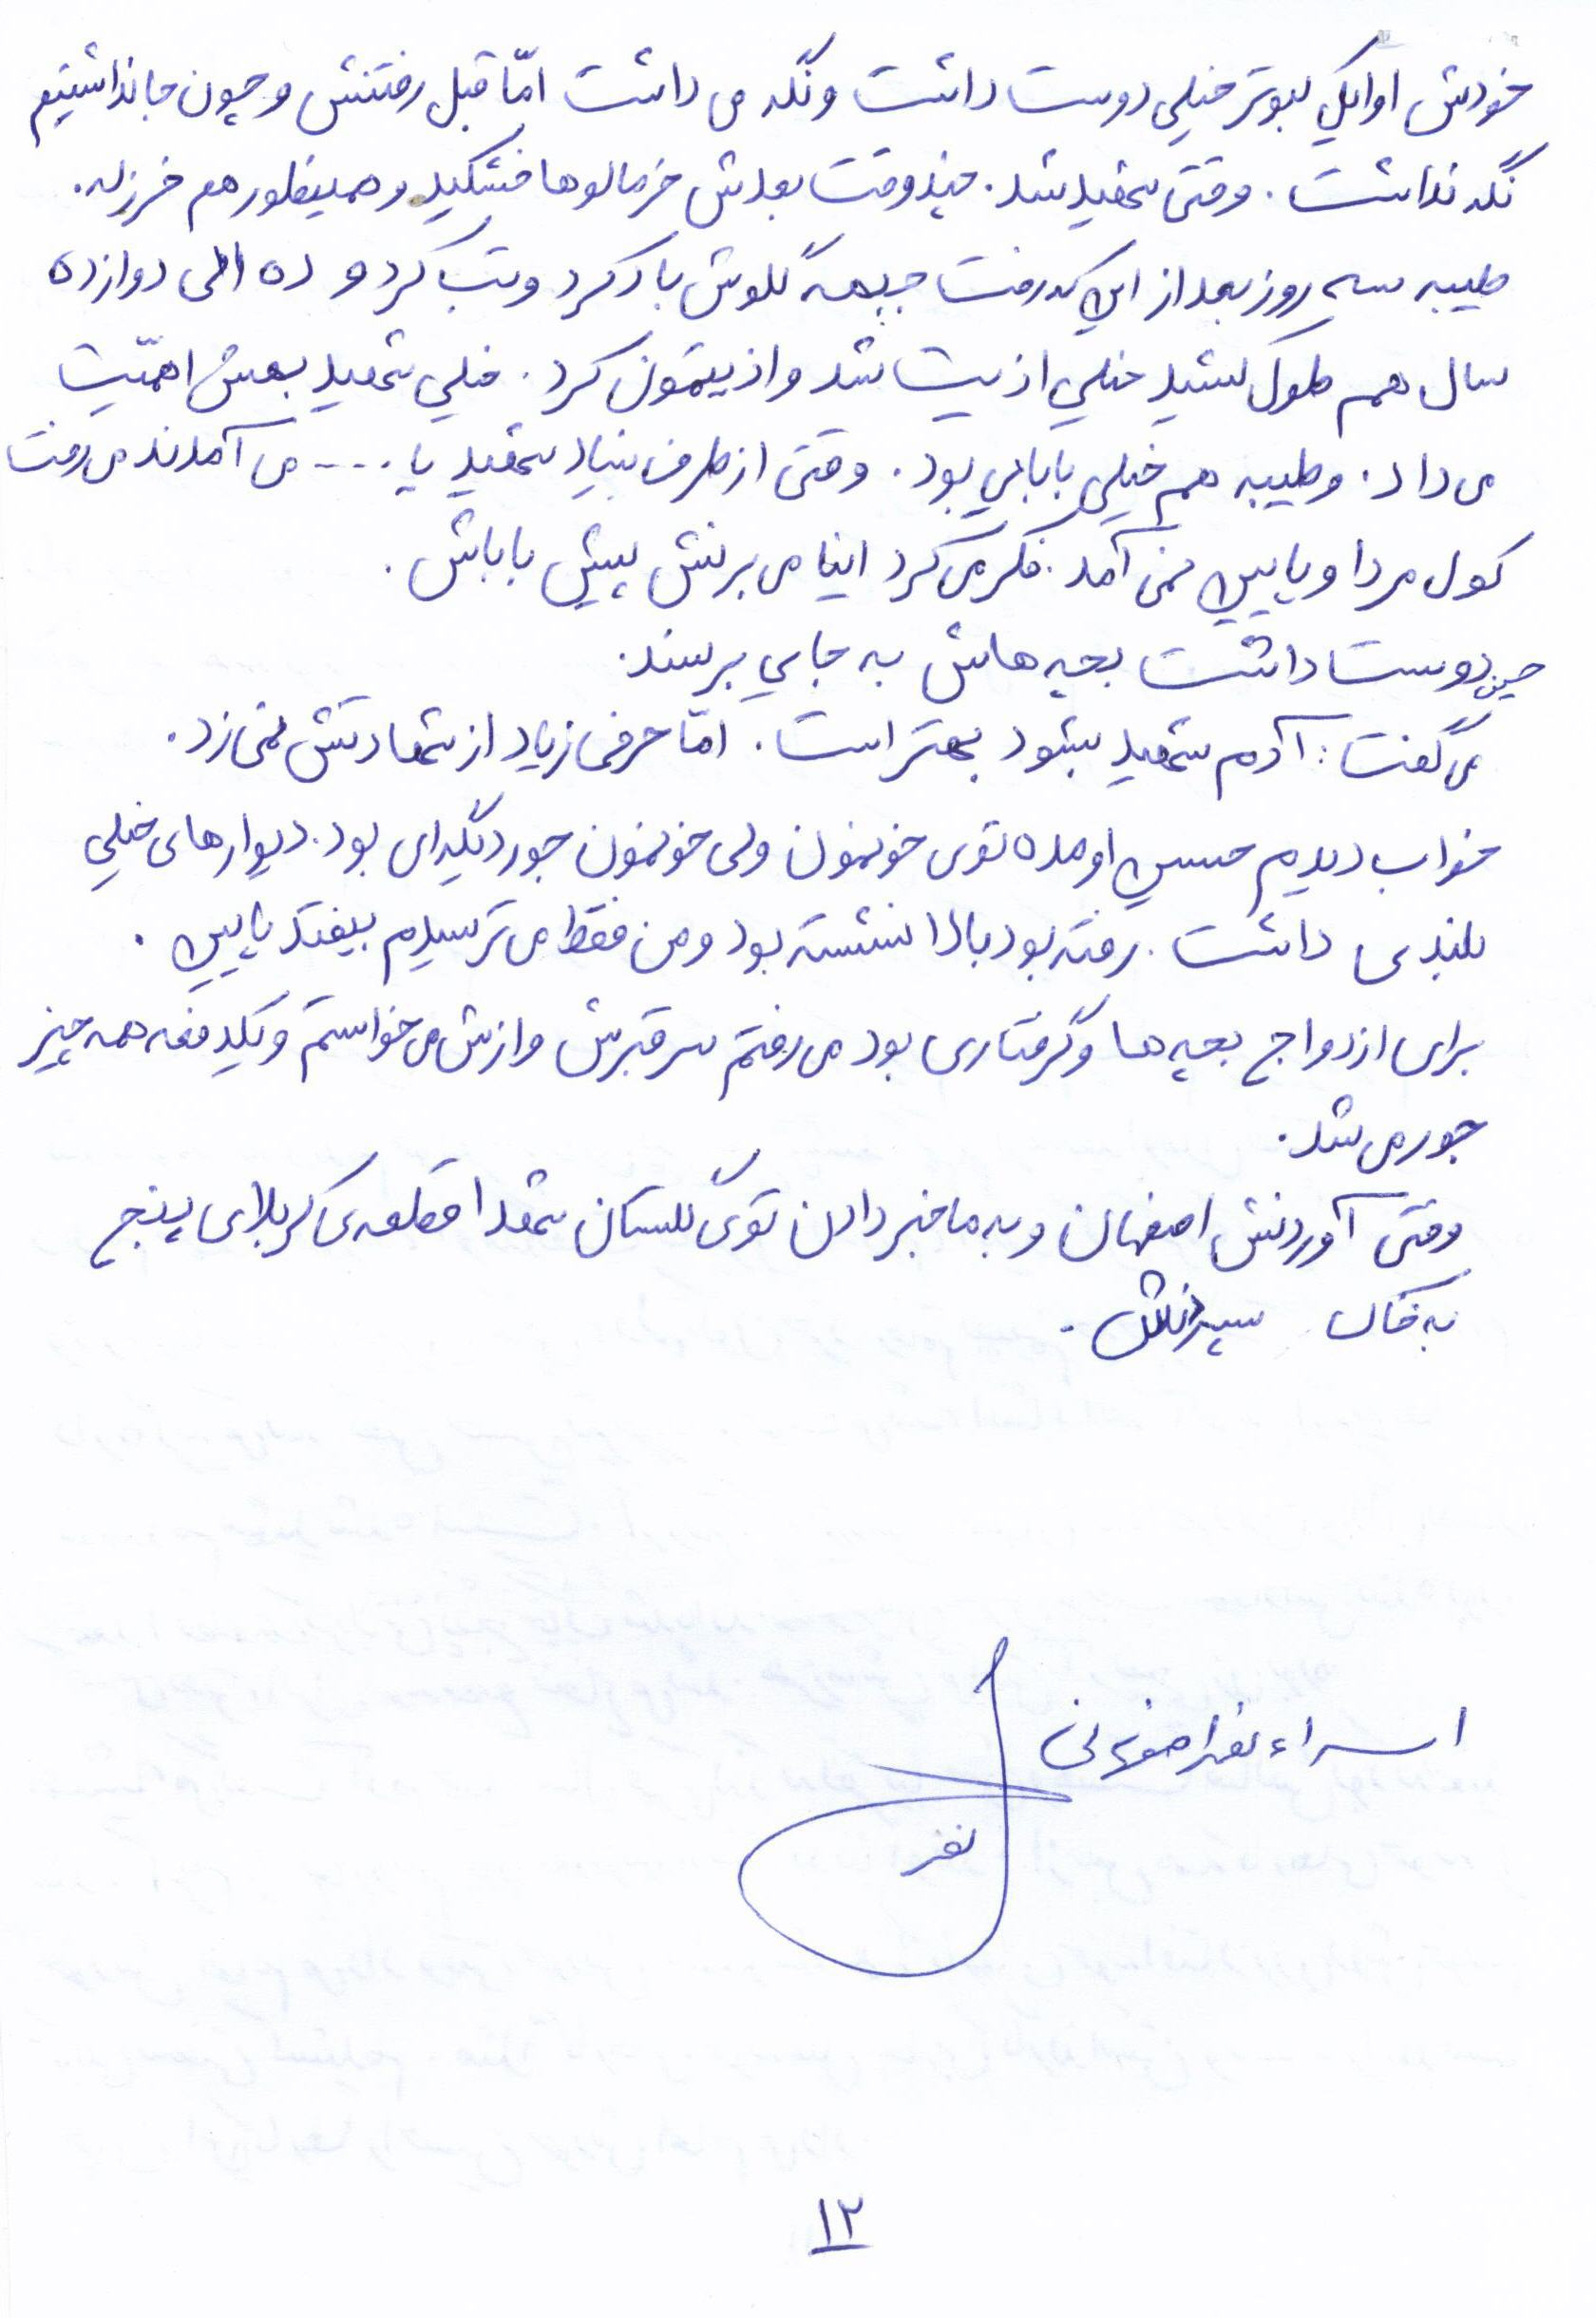 خودش اوایل کبوتر خیلی دوست داشت و نگه می داشت امّا قبل رفتنش و چون جا نداشتیم
نگه نداشت. وقتی شهید شد. چند وقت بعدش خرمالوها خشکید و همینطور هم خرزله.
طیبه سه روز بعد از این که رفت جبهه گلوش باد کرد و تب کرد و ده الی دوازده
سال هم طول کشید خیلی اذیت شد و اذیتمون کرد. خیلی شهید بهش اهمّیت
می داد. و طیبه هم خیلی بابایی بود. وقتی از طرف بنیاد شهید یا .... می آمدند می رفت
کول مردا و پایین نمی آمد. فکر می کرد اینا می برنش پیش باباش.
حسین دوست داشت بچه هاش به جایی برسند.
می گفت: آدم شهید بشود بهتر است. امّا حرفی زیاد از شهادتش نمی زد.
خواب دیدم حسین اومده توی خونمون ولی خونمون جور دیگه ای بود. دیوارهای خیلی
بلندی داشت. رفته بود بالا نشسته بود و من فقط می ترسیدم بیفتد پایین.
برای ازدواج بچه ها و گرفتاری بود می رفتم سر قبرش و ازش می خواستم و یکدفعه همه چیز
جور می شد.
وقتی آوردنش اصفهان و به ما خبر دادن توی گلستان شهدا قطعه ی کربلای پنج
به خاک سپردنش.
اسراء نفر اصفهانی
نفر
۱۲